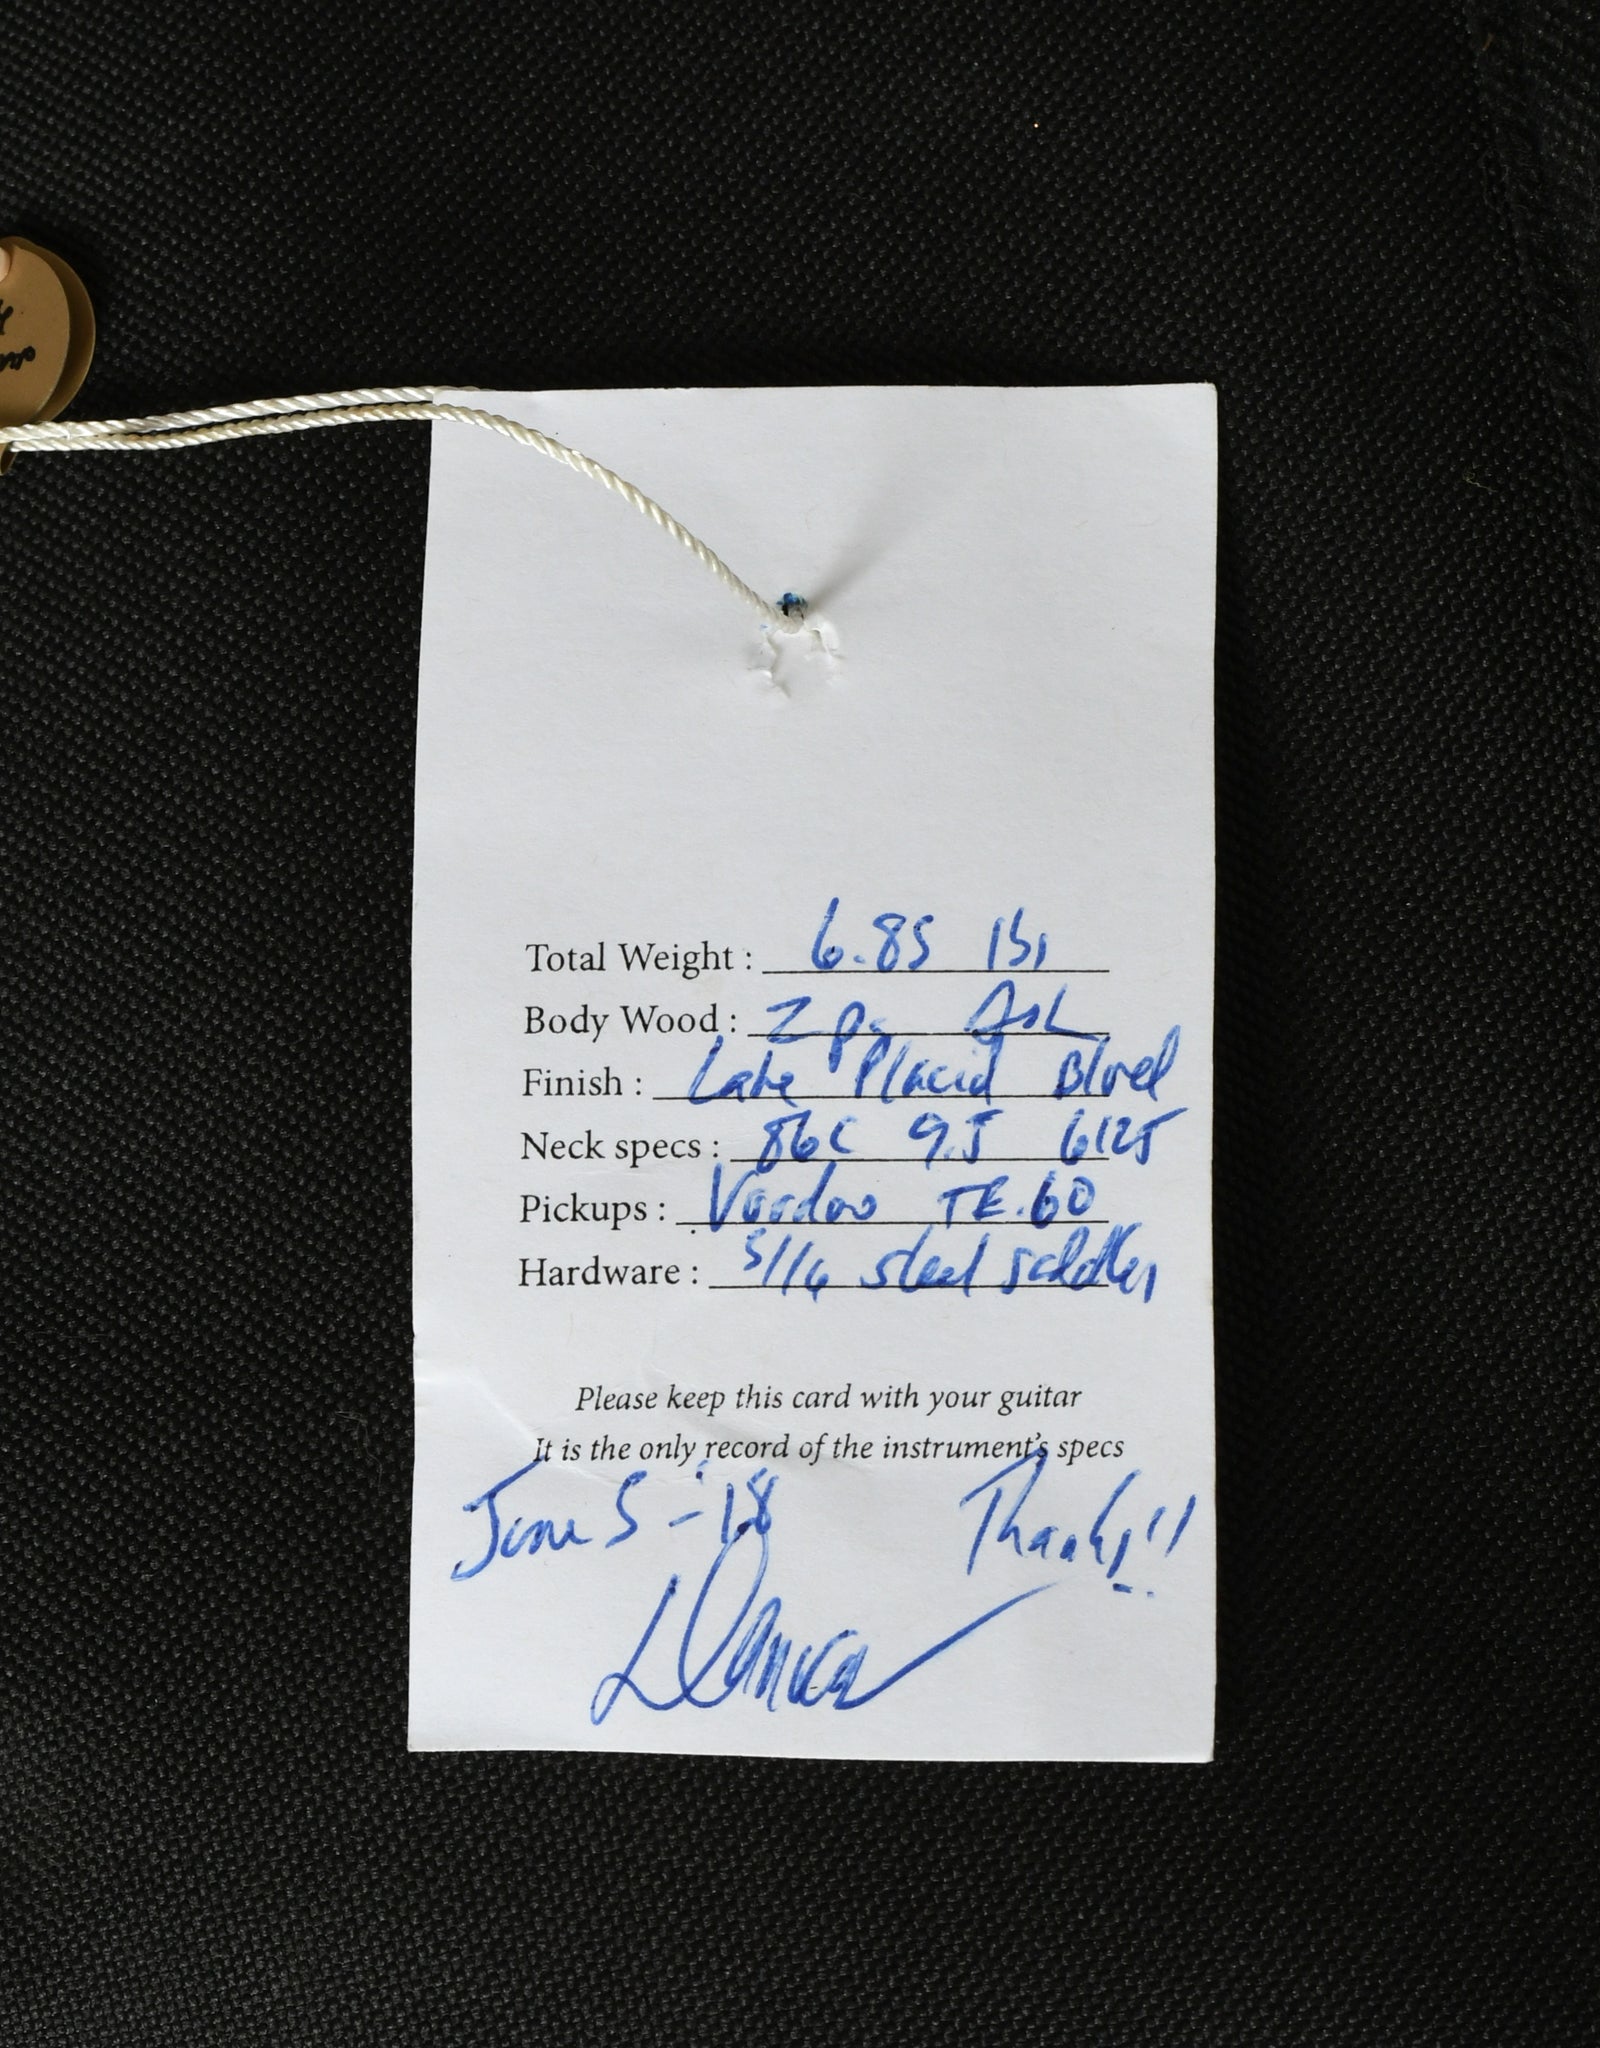 Total Weight : 6.85 lbs
Body Wood : 2 pc Ash
Finish : Lake Placid
Neck specs : 86C 9.5 6125
Pickups : Voodoo TE.60
Hardware : 5/16 steel saddles
Please keep this card with your guitar
It is the only record of the instrument's specs
June 5 - '18 Thanks!!